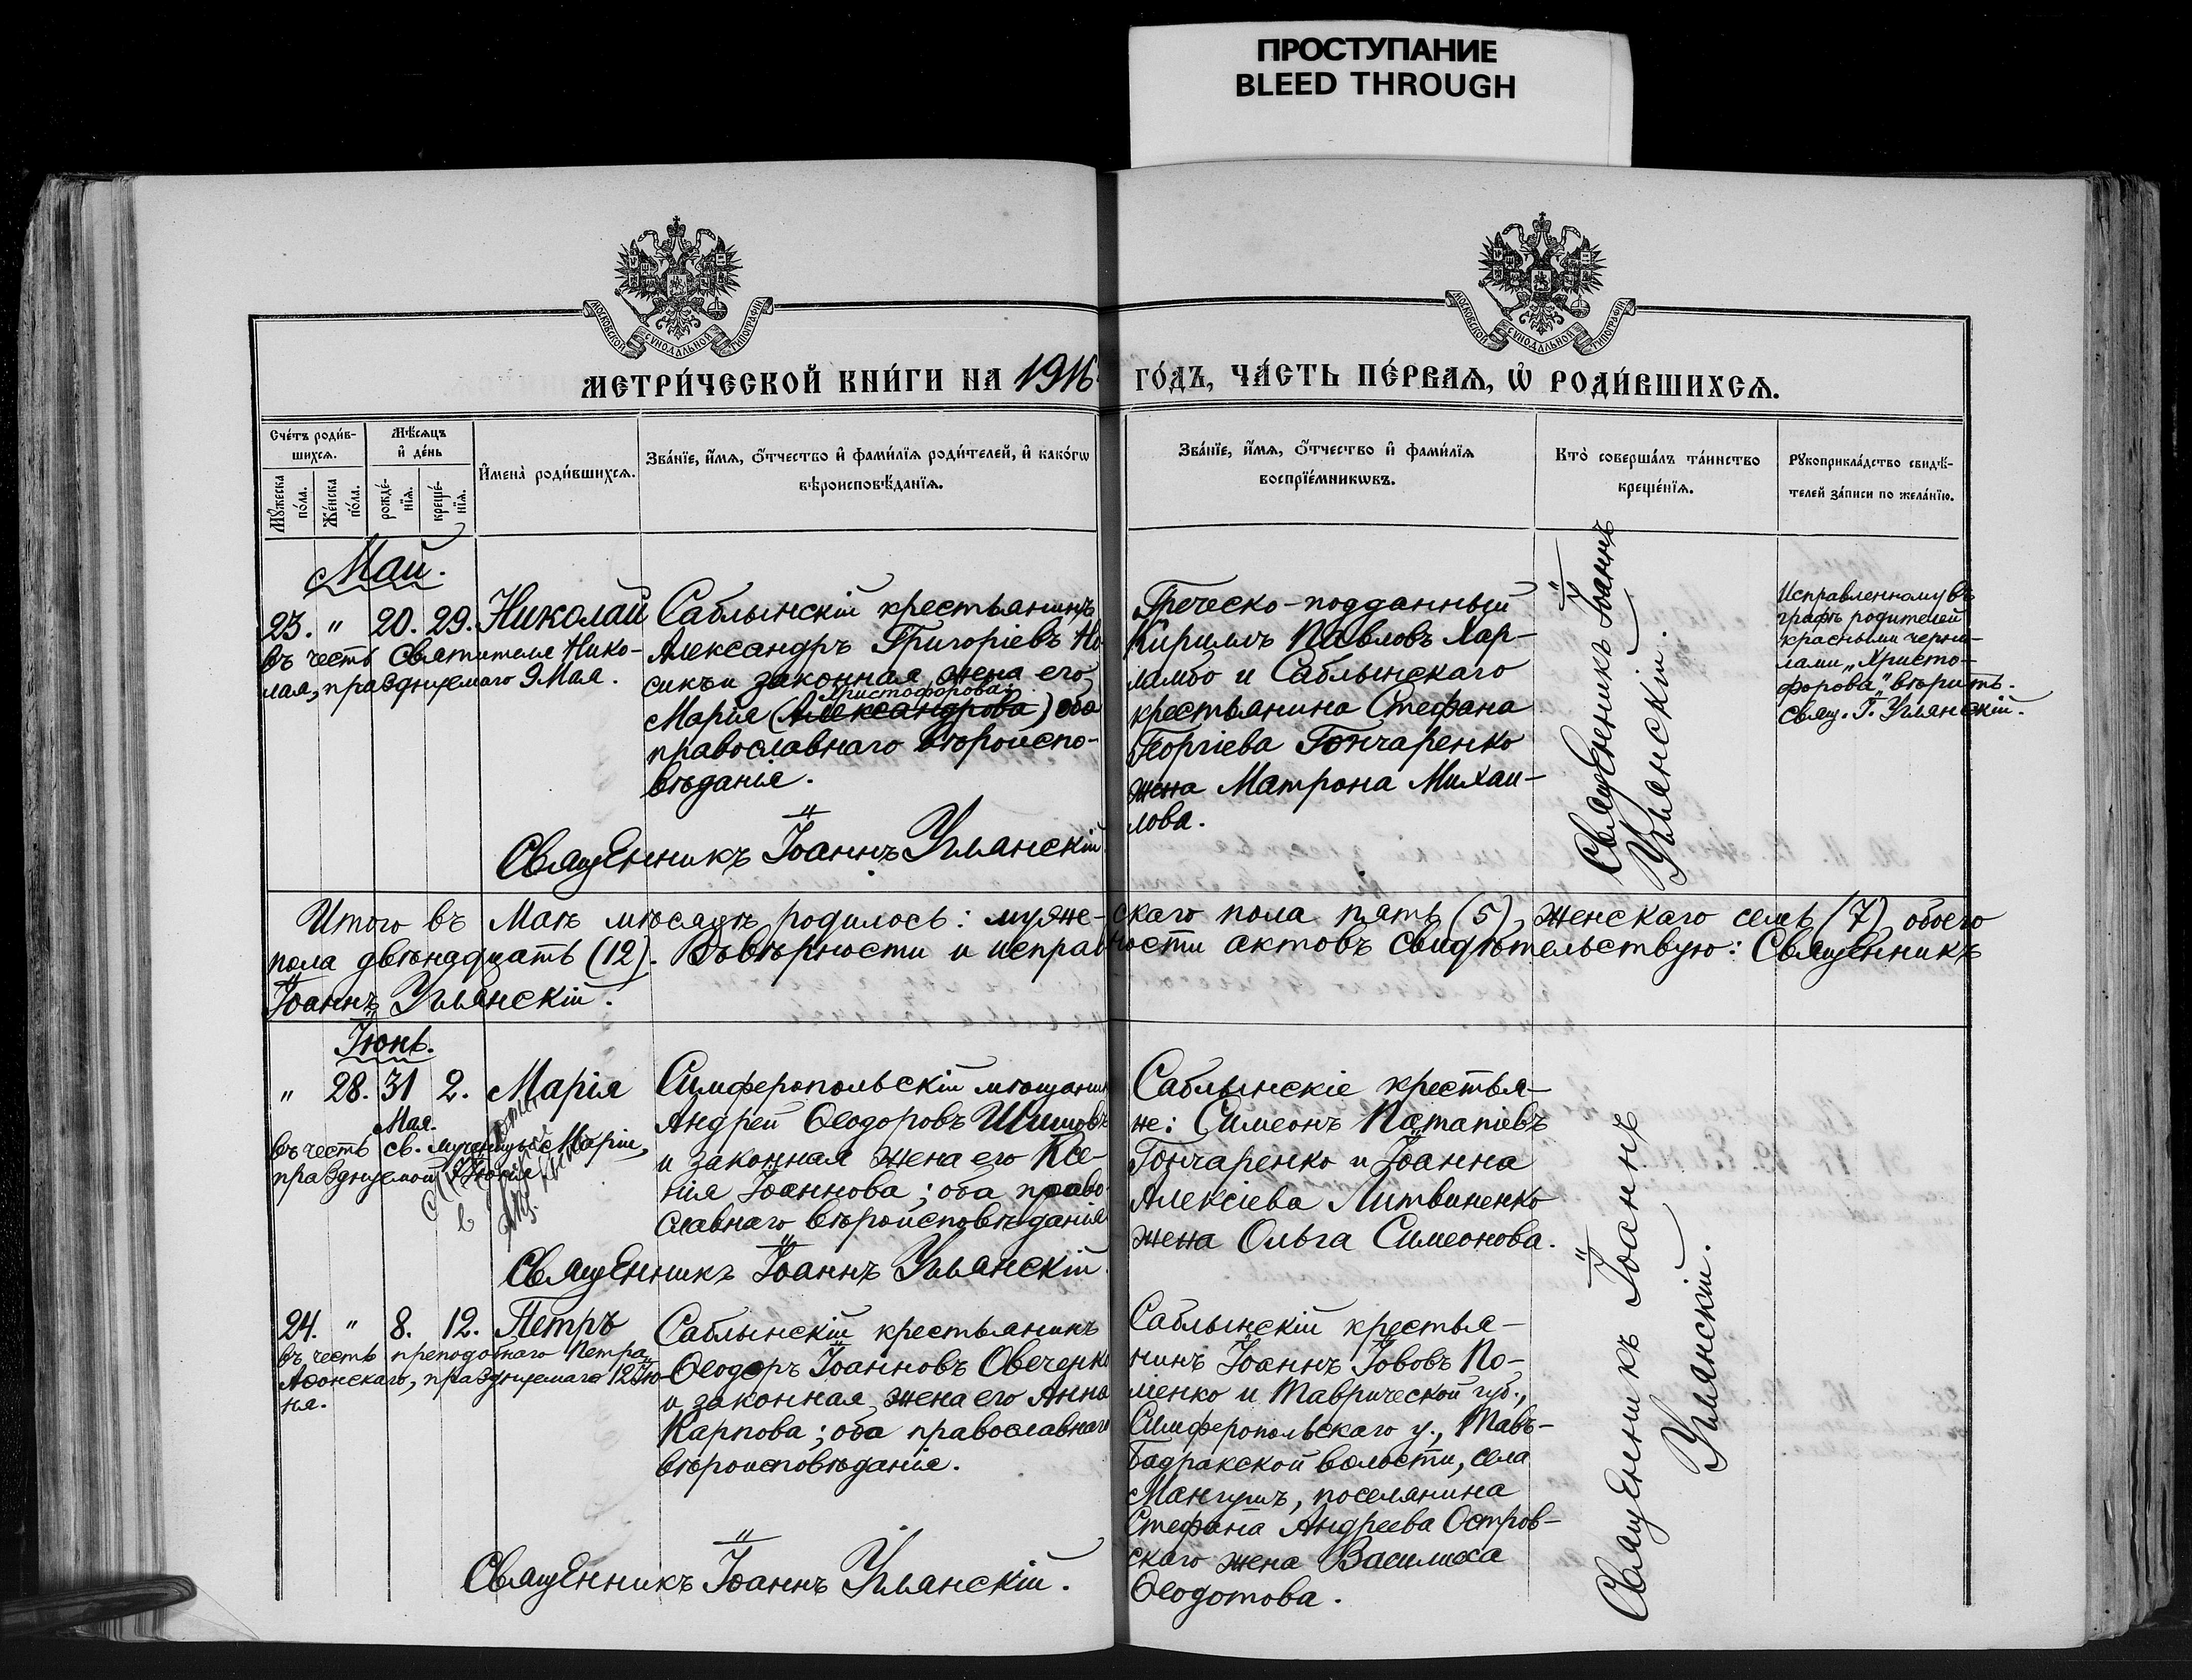 ПРОСТУПАНИЕ
BLEED THROUGH
МОСКОВСКОЙ СУНОДАЛЬНОЙ ТИПОГРАФІИ
МОСКОВСКОЙ СУНОДАЛЬНОЙ ТИПОГРАФІИ
МЕТРИ́ЧЕСКОЙ КНИ́ГИ НА 1916 ГО́ДЪ, ЧА́СТЬ ПЕ́РВАѦ, Ѡ РОДИ́ВШИХСѦ.
Сче́тъ роди́в-
шихсѧ.
Мꙋ́жеска
по́ла.
Же́нска
по́ла.
Мѣ́сяцъ
и҆ де́нь
рожде́-
нїѧ.
креще́-
нїѧ.
И҆мена̀ роди́вшихсѧ.
Зва́нїе, и҆́мѧ, ѻ҆́тчество и҆ фами́лїѧ роди́телей, и҆ како́гѡ
вѣроисповѣ́данїѧ.
Зва́нїе, и҆́мѧ, ѻ҆́тчество и҆ фами́лїѧ
воспрїе́мникѡвъ.
Кто̀ соверша́лъ та́инство
креще́нїѧ.
Рꙋкоприкла́дство свидѣ́-
телей за́писи по жела́нїю.
Май.
23. " 20. 29. Николай
въ честь Святителя Нико-
лая, празднуемаго 9 Мая.
Саблынскій крестьянинъ
Александръ Григоріевъ Но-
сикъ и законная жена его
Христофорова
Марія (Александрова) оба
православнаго вѣроиспо-
вѣданія.
Священникъ Іоаннъ Углянскій
Греческо-подданный
Кириллъ Павловъ Хар-
ламбо и Саблынскаго
крестьянина Стефана
Георгіева Гончаренко
жена Матрона Михаи-
лова.
Священникъ Іоаннъ
Углянскій.
Исправленному въ
графѣ родителей
красными черни-
лами „Христо-
форова" вѣрить.
Свящ. І. Углянскій.
Итого въ Маѣ мѣсяцѣ родилось: мужескаго пола пять (5), женскаго семь (7), обоего
пола двѣнадцать (12). Въ вѣрности и исправности актовъ свидѣтельствую: Священникъ
Іоаннъ Углянскій.
Іюнь.
" 28. 31 2. Марія
Мая.
въ честь св. мученицы Маріи,
празднуемой Іюня
Симферопольскій мѣщанинъ
Андрей Ѳеодоровъ Шишовъ
и законная жена его Ксе-
нія Іоаннова; оба право-
славнаго вѣроисповѣданія
Священникъ Іоаннъ Углянскій.
Саблынскіе крестья-
не: Симеонъ Патапіевъ
Гончаренко и Іоанна
Алексіева Литвиненко
жена Ольга Симеонова.
24. " 8. 12. Петръ
въ честь преподобнаго Петра
Аѳонскаго, празднуемаго 12 Ію-
ня.
Саблынскій крестьянинъ
Ѳеодоръ Іоанновъ Овеченко
и законная жена его Анна
Карпова; оба православнаго
вѣроисповѣданія.
Священникъ Іоаннъ Углянскій.
Саблынскій крестья-
нинъ Іоаннъ Іововъ По-
ліенко и Таврической губ.,
Симферопольскаго у., Тавъ-
Бадракской волости, села
Мангушъ, поселянина
Стефана Андреева Остров-
скаго жена Василиса
Ѳеодотова.
Священникъ Іоаннъ
Углянскій.